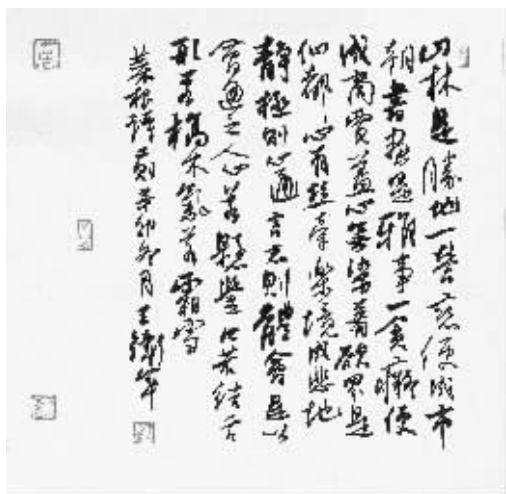 山林是勝地一營戀便成市
朝書畫是雅事一貪癡便
成商賈蓋心無染著欲界是
仙都心有絲牽樂境成悲地
靜極則心通言忘則體會是以
會通之人心若懸鑒口若結舌
形若槁木氣若霜雪
菜根譚 辛卯冬月王衛軍